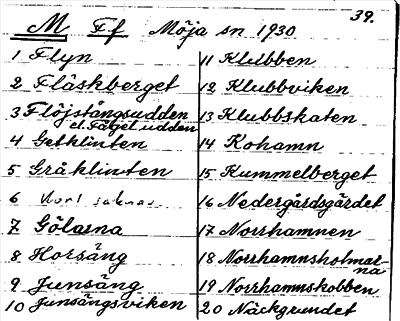 39.
M Ff Möja sn 1930
1 Flyn
2 Fläskberget
3 Flöjstångsudden
el. Fågeludden
4 Getklinten
5 Gråklinten
6 Kort saknas
7 Gölarna
8 Horsäng
9 Junsäng
10 Junsängsviken
11 Klubben
12 Klubbviken
13 Klubbskaten
14 Kohamn
15 Kummelberget
16 Nedergårdsgärdet
17 Norrhamnen
18 Norrhamnsholmar-
na
19 Norrhamnskobben
20 Näckgrundet